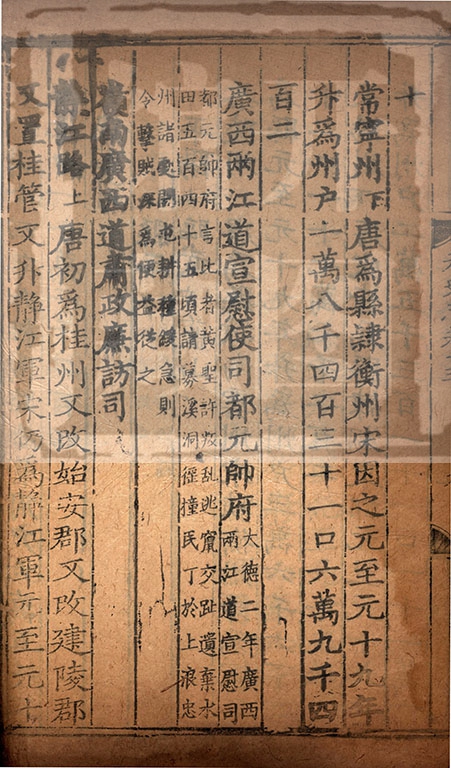 十
常寧州下唐爲縣隷衡州宋因之元至元十九年
升爲州户一萬八千四百三十一口六萬九千四
百二
廣西兩江道宣慰使司都元帥府
大德二年廣西
兩江道宣慰司
都元帥府言比者黃聖許叛乱逃竄交趾遺棄水
田五百四十五頃請募溪洞徭撞民丁於上浪忠
州諸處開屯耕種緩急則
令擊賊深爲便益從之
嶺南廣西道肅政廉訪司
靜江路上唐初爲桂州又改始安郡又改建陵郡
又置桂管又升静江軍宋仍爲静江軍元至元十